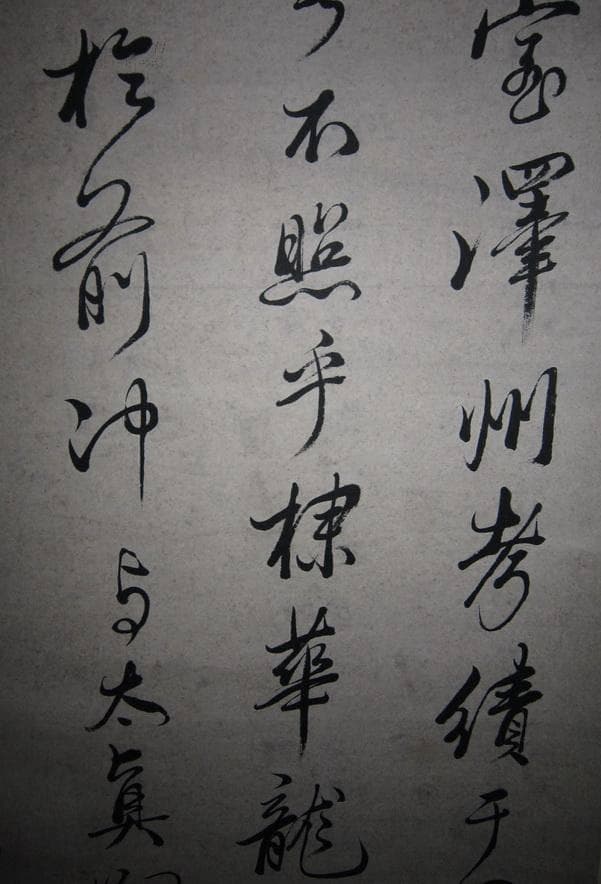 澤州考績于
不照乎棣華龍
於前冲与太眞